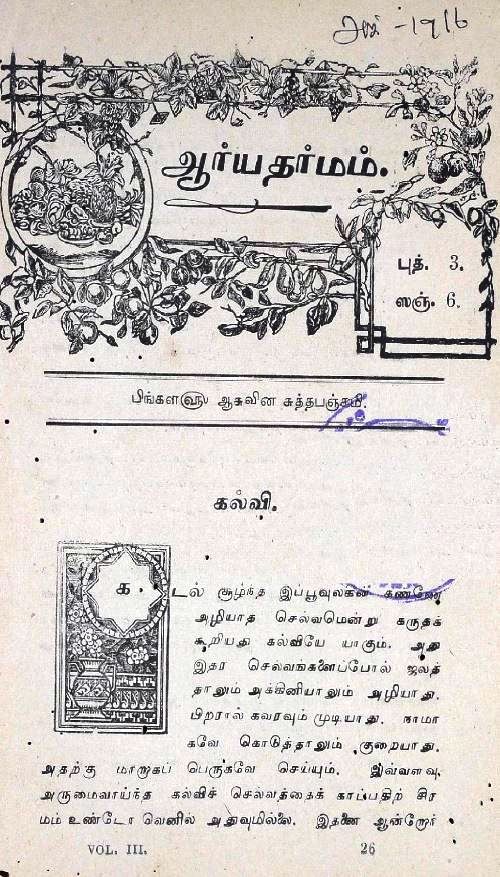 -1916
ஆர்யதர்மம்.
புத். 3.
ஸஞ். 6.
பிங்களஹு ஆசுவின சுத்தபஞ்சமி.
கல்வி.
கடல் சூழ்ந்த இப்பூவுலகின் கண்ணே
அழியாத செல்வமென்று கருதக்
கூறியது கல்வியே யாகும். அது
இதர செல்வங்களைப்போல் ஜலத்
தாலும் அக்கினியாலும் அழியாது.
பிறரால் கவரவும் முடியாது. நாமா
கவே கொடுத்தாலும் குறையாது.
அதற்கு மாறாகப் பெருகவே செய்யும். இவ்வளவு
அருமைவாய்ந்த கல்விச் செல்வத்தைக் காப்பதிற் சிர
மம் உண்டோ வெனில் அதுவுமில்லை. இதனை ஆன்றோர்
VOL. III. 26